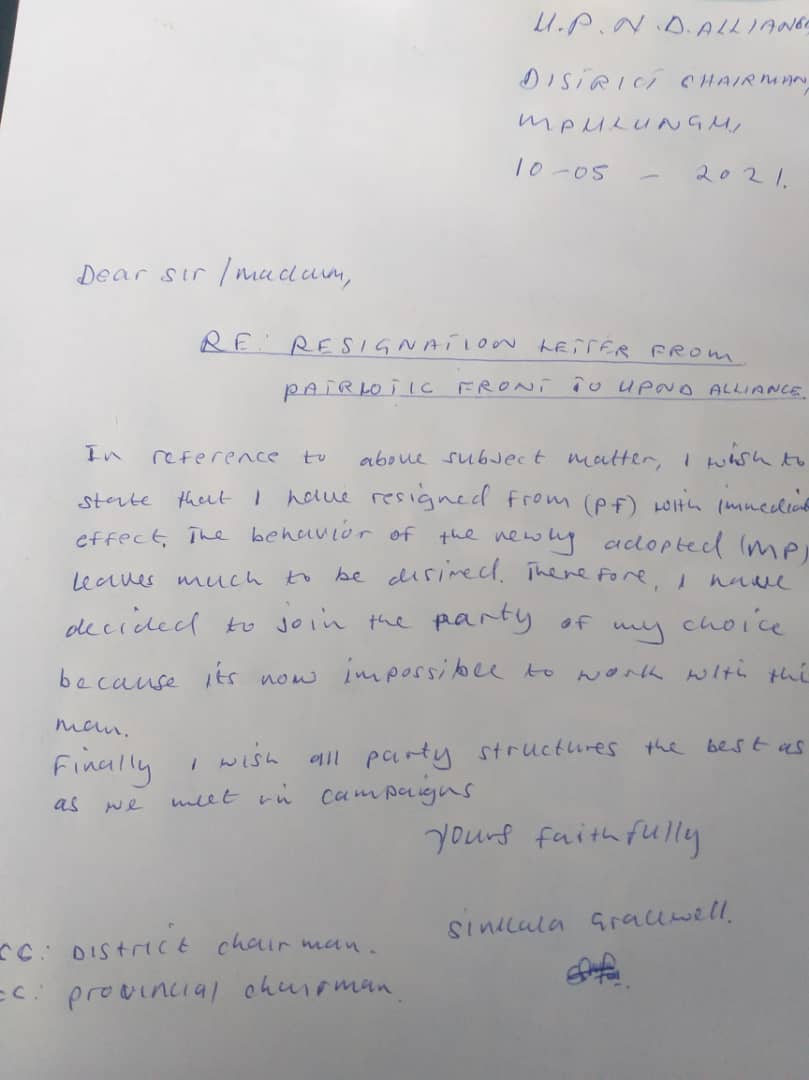 U.P.N.D. ALLIANCE
DISTRICT CHAIRMAN,
MPULUNGU,
10-05 - 2021.
Dear sir/madam,
RE: RESIGNATION LETTER FROM
PATRIOTIC FRONT TO UPND ALLIANCE.
In reference to above subject matter, I wish to
state that I have resigned from (pf) with immediat
effect. The behavior of the newly adopted (MP)
leaves much to be desired. Therefore, I have
decided to join the party of my choice
because its now impossible to work with thi
man.
Finally I wish all party structures the best as
as we meet in campaigns
Yours faithfully
Sinkala Gracewell.
CC: District chairman.
CC: provincial chairman.